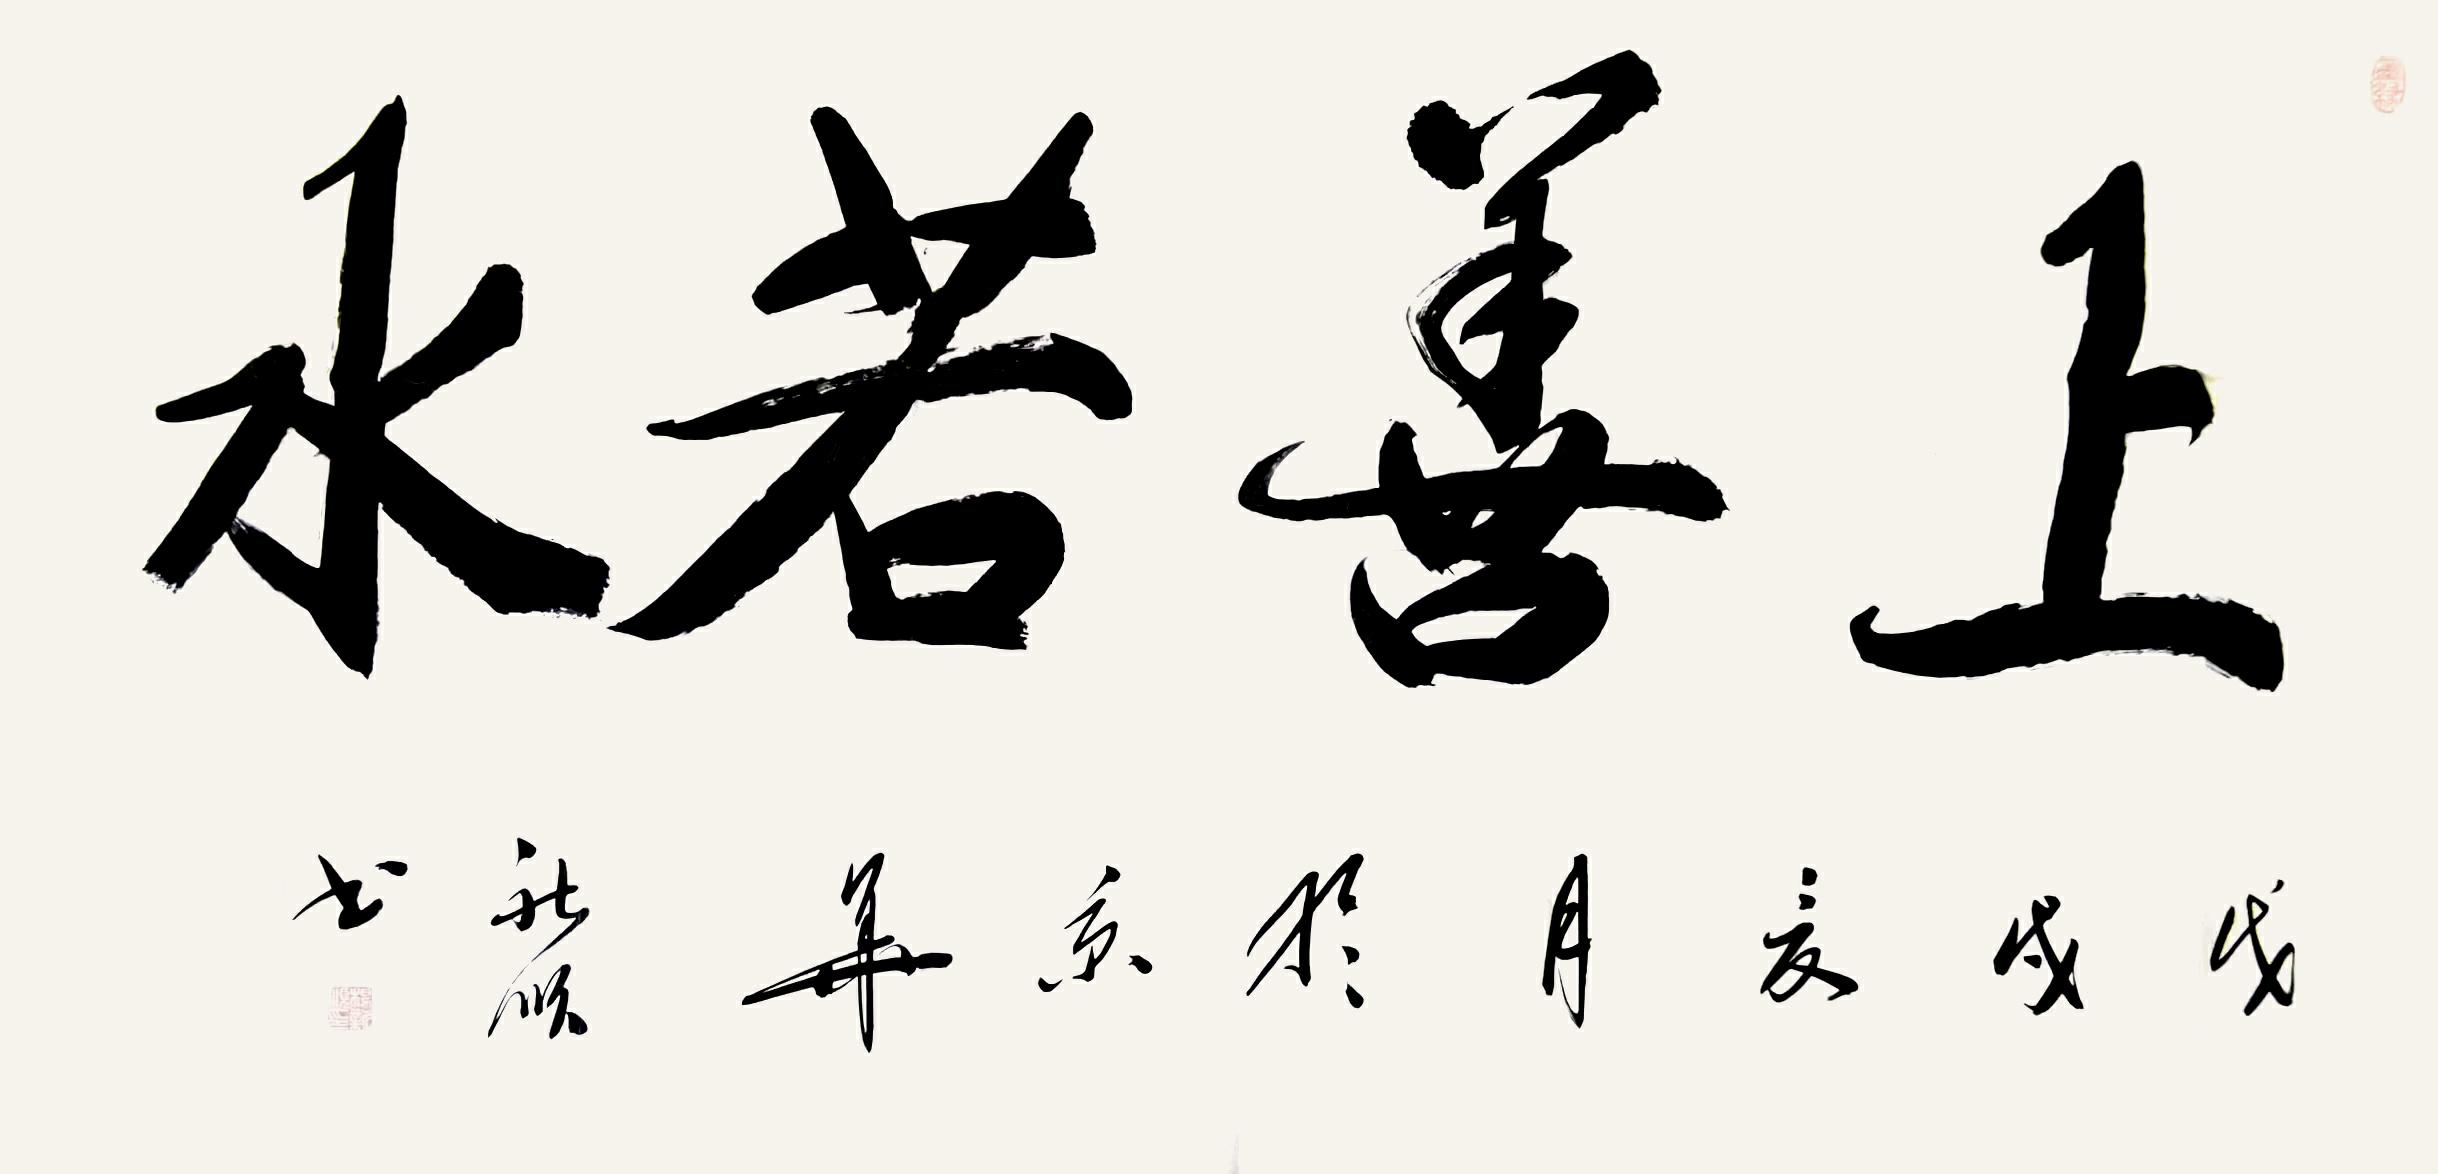 上善若水
戊戌夏月於京華 書